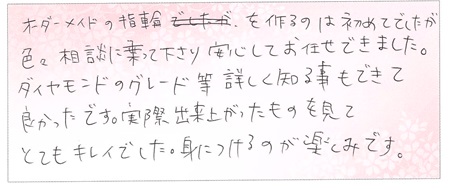 オーダーメイドの指輪でしたが、を作るのは初めてでしたが
色々相談に乗って下さり安心してお任せできました。
ダイヤモンドのグレード等詳しく知る事もできて
良かったです。実際出来上がったものを見て
とてもキレイでした。身につけるのが楽しみです。